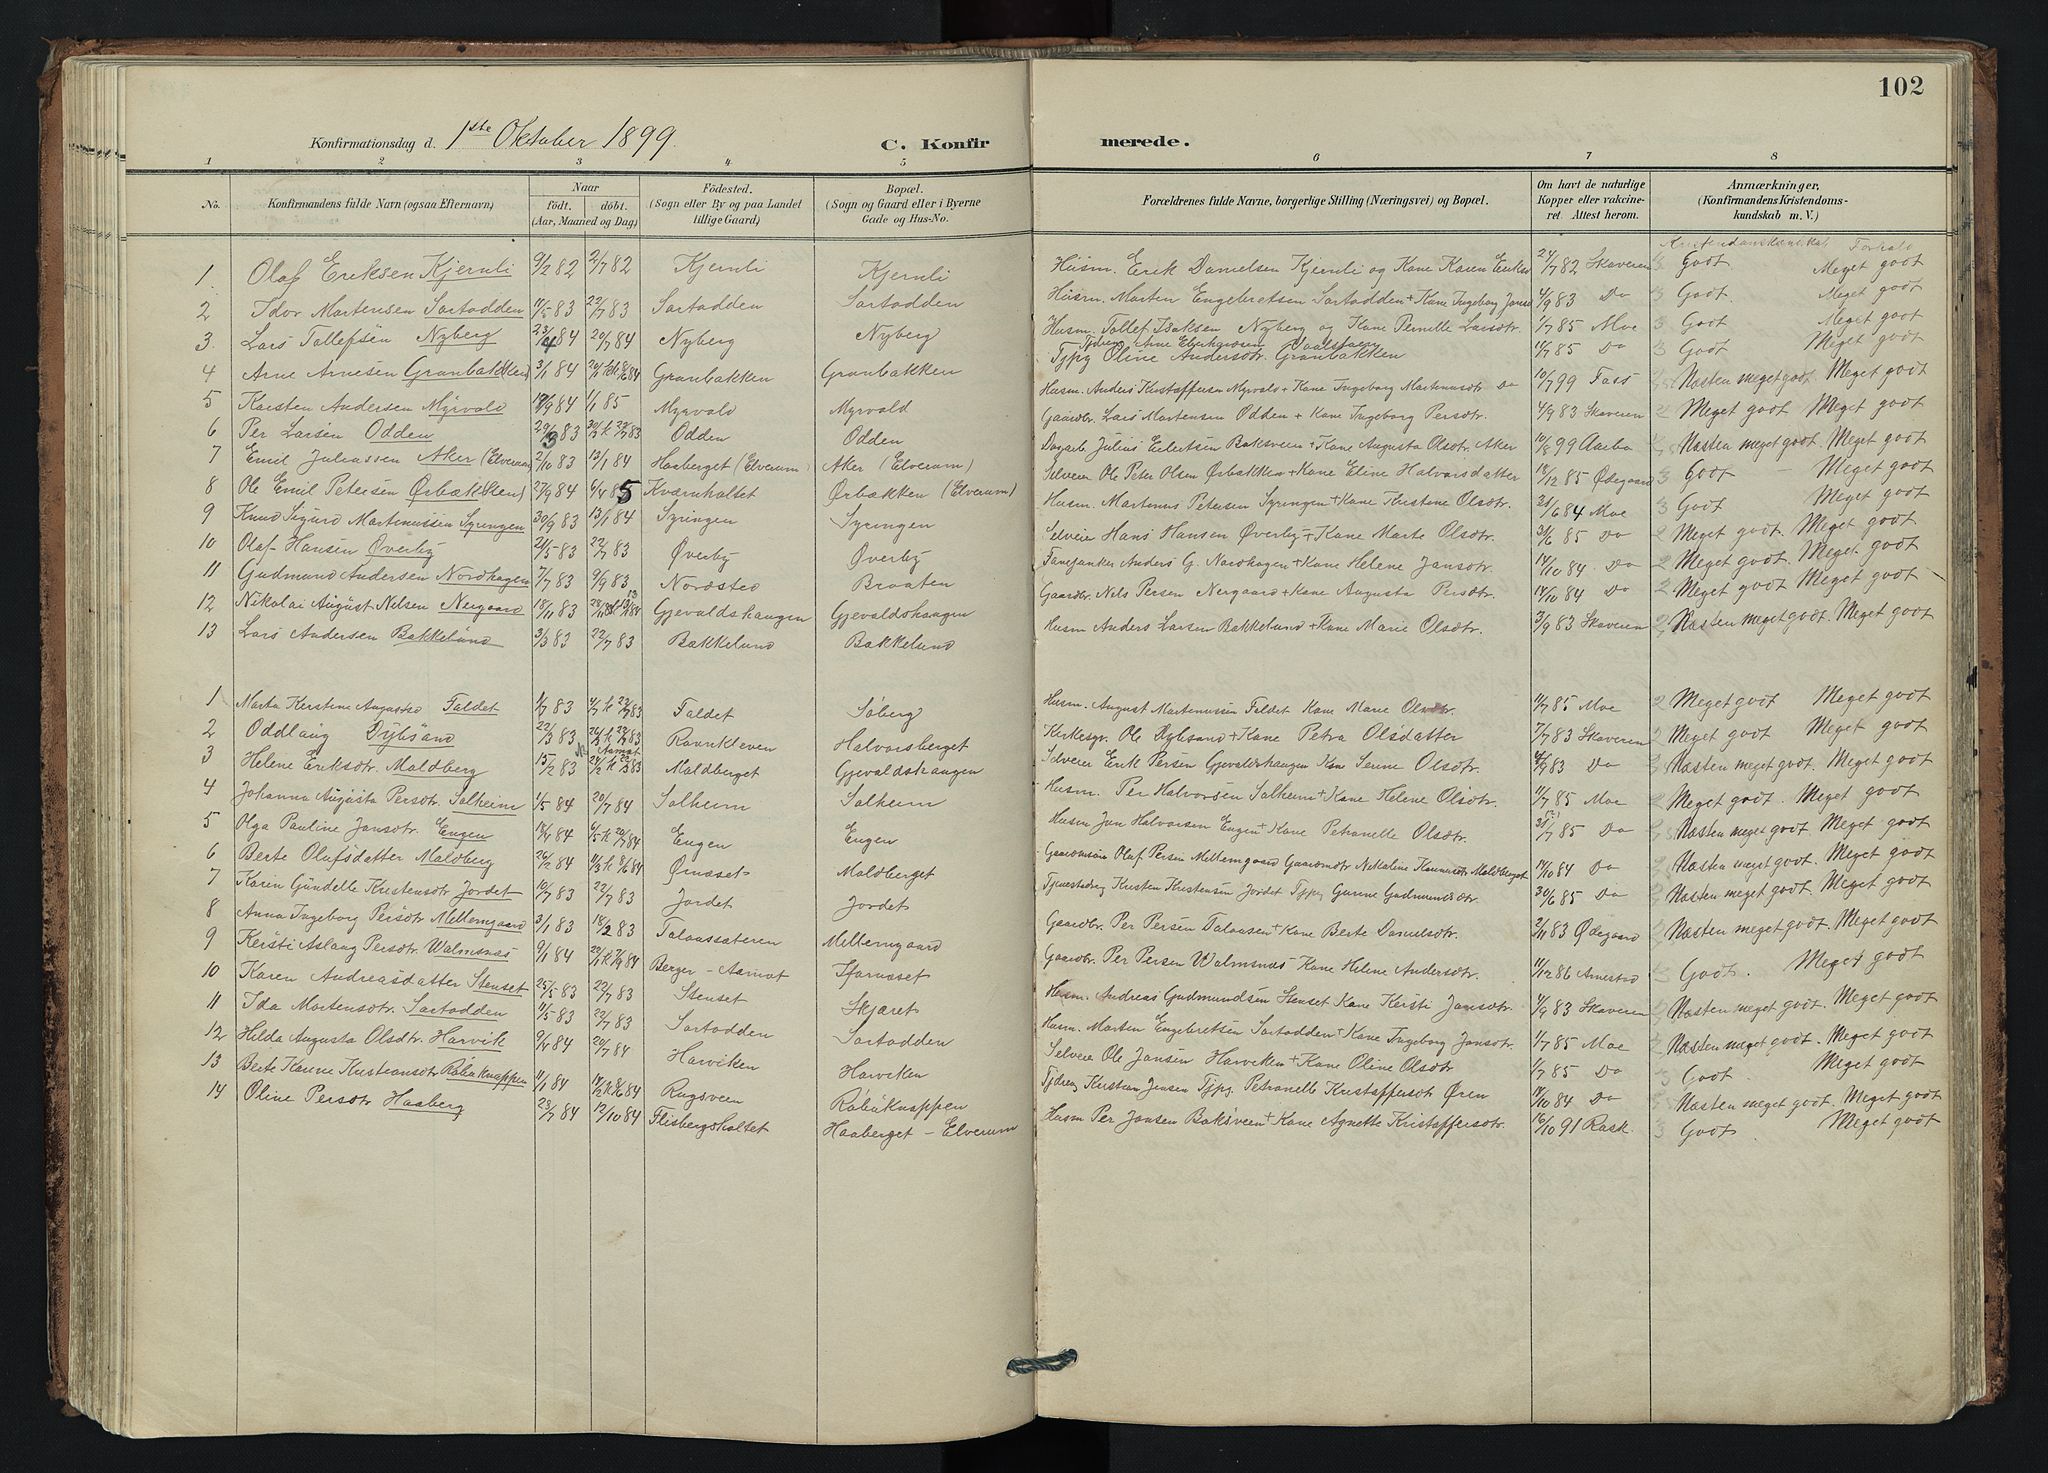 102
Konfirmationsdag d. 1ste Oktober 1899. C. Konfirmerede.
1 2 3 4 5 6 7 8
No. | Konfirmandens fulde Navn (ogsaa Efternavn) | Naar Födt. döbt. (Aar, Maaned og Dag) | Födested. (Sogn eller By og paa Landet tillige Gaard) | Bopæl. (Sogn og Gaard eller i Byerne Gade og Hus-No. | Forældrenes fulde Navne, borgerlige Stilling (Næringsvei) og Bopæl. | Om havt de naturlige Kopper eller vakcineret. Attest herom. | Anmærkninger, (Konfirmandens Kristendomskundskab m. V.)
1 Olaf Eriksen Kjernli 9/2 82 2/7 82 Kjernli Kjernli Husm. Erik Danielsen Kjernli og Kone Karen 24/7 82 Skaveren 3 Godt Meget godt
2 Idor Martensen Sortodden 11/5 83 22/7 83 Sortodden Sortodden Husm. Marten Engebretsen Sortodden + Kone Ingeborg 4/9 83 Do 3 Godt Meget godt
3. Lars Tollefsen Nyberg 23/4 84 20/7 84 Nyberg Nyberg Husm. Tollef Isaksen Nyberg og Kone Pernille Larsdtr. 1/7 85 Moe 3 Godt Meget godt
4 Arne Arnesen Granbakken 3/1 84 Granbakken Granbakken Tjpg Oline Andersdtr. Granbakken 11/7 85 Do 3 Godt Meget godt
5 Karsten Andersen Myrvold 84 1/1 85 Myrvold Myrvold Husm. Anders Kristoffersen Myrvold + Kone Ingeborg Martensdtr Do 10/7 99 Fass Næsten meget godt Meget godt
6 Per Larsen Odden 29/3 83 Odden Odden Gaardbr. Lars Martensen Odden + Kone Ingeborg Persdtr. 4/9 83 Skaveren 2 Meget godt Meget godt
7 Emil Juliussen Aker (Elverum) 2/10 83 13/1 84 Haaberget (Elverum) Aker (Elverum) Julius Eilertsen Baksveen + Kone Augusta Olsdtr. Aker 10/8 99 Aarbo Næsten meget godt. Meget godt
8 Ole Emil Petersen Ørbækken 27/9 84 6/4 85 Kværnholtet Ørbækken (Elverum) Selveier Ole Peter Olsen Ørbækken + Kone Eline Halvorsdatter 18/12 85 Ødegaard 3 Godt Meget godt
9 Knud Sigurd Martinussen Syringen 30/9 83 13/1 84 Syringen Syringen Husm. Martinus Petersen Syringen + Kone Kristine Olsdtr. 21/6 84 Moe 3 Godt Meget godt
10 Olaf Hansen Øverby 21/5 83 22/7 83 Øverby Øverby Selveier Hans Hansen Øverby + Kone Marte Olsdtr. 3/6 85 Do 2 Meget godt. Meget godt
11 Gudmund Andersen Nordhagen 7/7 83 9/9 83 Nordsted Braaten Fanejunker Anders G. Nordhagen + Kone Helene Jansdtr. 14/10 84 Do 2 Meget godt. Meget godt
12 Nikolai August Nilsen Nergaard 18/11 83 Gjevaldshaugen Gjevaldshaugen Gaardbr. Nils Persen Nergaard + Kone Augusta Persdtr. 14/10 84 Do 2 Meget godt Meget godt
13 Lars Andersen Bakkelund 3/3 83 22/7 83 Bakkelund Bakkelund Husm Anders Larsen Bakkelund + Kone Marie Olsdtr. 3/9 83 Skaveren Næsten meget godt. Meget godt
1 Marta Kerstine Augustsd Faldet 1/7 83 Faldet Søberg Husm. August Martinussen Faldet Kone Marie Olsdtr. 11/7 85 Moe 2 Meget godt Meget godt
2 Oddlaug Dybsand 22/3 83 Ravnkleven Halvorsberget Kirkesgr. Ole Dybsand + Kone Petra Olsdatter 7/7 83 Skaveren 2 Meget godt Meget godt
3 Helene Eriksdtr. Moldberg 15/2 83 Aamot Moldberget Gjevaldshaugen Selveier Erik Persen Gjevaldshaugen Kone Serine Olsdtr. 4/9 83 Do Næsten meget godt. Meget godt
4 Johanna Augusta Persdtr. Solheim 1/5 84 20/7 84 Solheim Solheim Husm. Per Halvorsen Solheim + Kone Helene Olsdtr. 11/7 85 Moe 2 Meget godt. Meget godt
5 Olga Pauline Jansdtr. Engen 84 Engen Engen Husm Jan Halvorsen Engen + Kone Petronelle Olsdtr. 85 Do Næsten meget godt. Meget godt
6 Berte Olafsdatter Moldberg 26/2 84 Ørnæset Moldberget Olaf Persen Mellemgaard 14/10 84 Do Næsten meget godt. Meget godt
7 Karin Gundelle Kristensdtr Jordet 10/7 83 22/7 83 Jordet Jordet Kristen Kristensen Jordet Tjpg Gurine Gudmundsdtr. 30/6 85 Do Næsten meget godt. Meget godt
8 Anna Ingeborg Persdtr Mellemgaard 3/1 83 18/2 83 Talaassæteren Mellemgaard Gaardbr. Per Persen Talaasen + Kone Berte Danielsdtr. 2/11 83 Ødegaard Næsten meget godt. Meget godt
9 Kersti Aslaug Persdtr. Walmsnæs 9/1 84 Berger - Aamot Ifarnæset Gaardbr. Per Persen Walmsnæs Kone Helene Andersdtr. 11/12 86 Arnestad 3 Godt. Meget godt
10 Karen Andreasdatter Stenset 25/5 83 22/7 83 Stenset Skjæret Husm. Andreas Gudmundsen Stenset Kone Kersti Jansdtr. 4/9 83 Skaveren Næsten meget godt. Meget godt
11 Ida Mortensdtr. Sortodden 11/5 83 22/7 83 Sortodden Sortodden Husm. Marten Engebretsen Sortodden + Kone Ingeborg Jansdtr. 1/7 85 Moe Næsten meget godt. Meget godt
12 Hilda Augusta Olsdtr. Harvik 9/4 84 20/7 84 Harviken Harviken Selveier Ole Jansen Harviken + Kone Oline Olsdtr 1/7 85 Do 3 Godt. Meget godt
13 Berte Karine Kristiansdtr Röbäknappen 11/1 84 Rugsveen Röbäknappen Kristian Jensen Tjpg. Petronelle Kristoffersdtr Øren 14/10 84 Do Næsten meget godt. Meget godt
14 Oline Persdtr Haaberg 23/7 84 12/10 84 Flisbergsholtet Haaberget - Elverum Husm Per Jansen Baksveen + Kone Agnette Kristoffersdtr. 16/10 91 Rask. 3 Godt. Meget godt